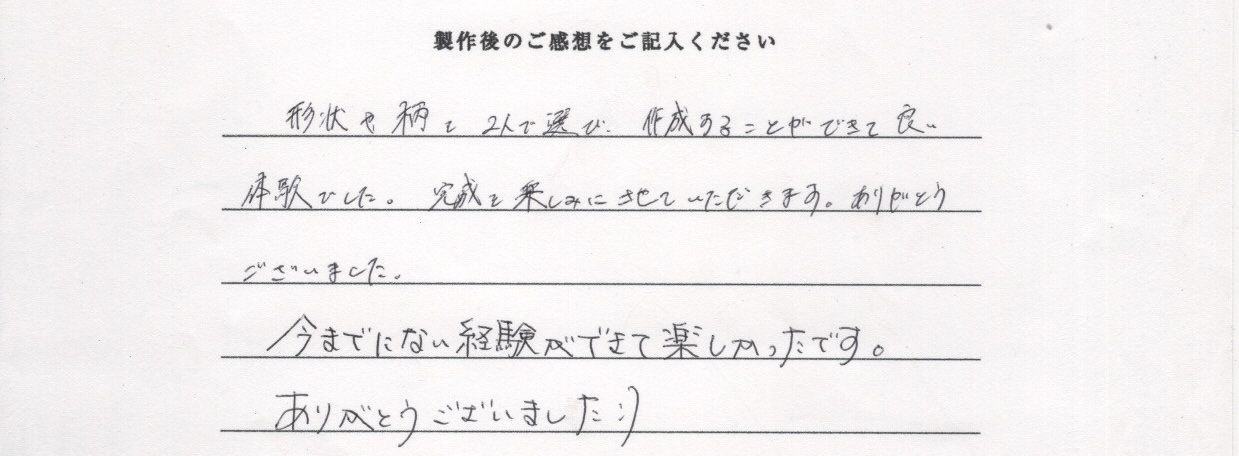 製作後のご感想をご記入ください
形状や柄を2人で選び、作成することができて良い
体験でした。完成を楽しみにさせていただきます。ありがとう
ございました。
今までにない経験ができて楽しかったです。
ありがとうございました:)